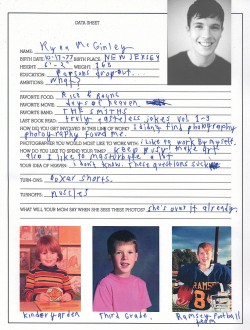 DATA SHEET
NAME: Ryan McGinley
BIRTH DATE: 10-17-77 BIRTH PLACE: NEW JERSEY
HEIGHT: 6'-2" WEIGHT: 165
EDUCATION: Parsons drop out...
AMBITIONS: What?
FAVORITE FOOD: Rice & Beans
FAVORITE MOVIE: days of heaven
FAVORITE BAND: THE SMITHS
LAST BOOK READ: truly tasteless jokes vol 1-3
HOW DID YOU GET INVOLVED IN THIS LINE OF WORK? I didn't find photography
photography found me.
PHOTOGRAPHER YOU WOULD MOST LIKE TO WORK WITH: I like to work by myself.
HOW DO YOU LIKE TO SPEND YOUR TIME? I keep busy make art
also I like to masturbate a lot
YOUR IDEA OF HEAVEN: I don't know. These questions suck
TURN-ONS: Boxer shorts.
TURNOFFS: muscles
WHAT WILL YOUR MOM SAY WHEN SHE SEES THESE PHOTOS? she's over it already.
RAMS
8
kindergarden
Third Grade.
Ramsey Football
team